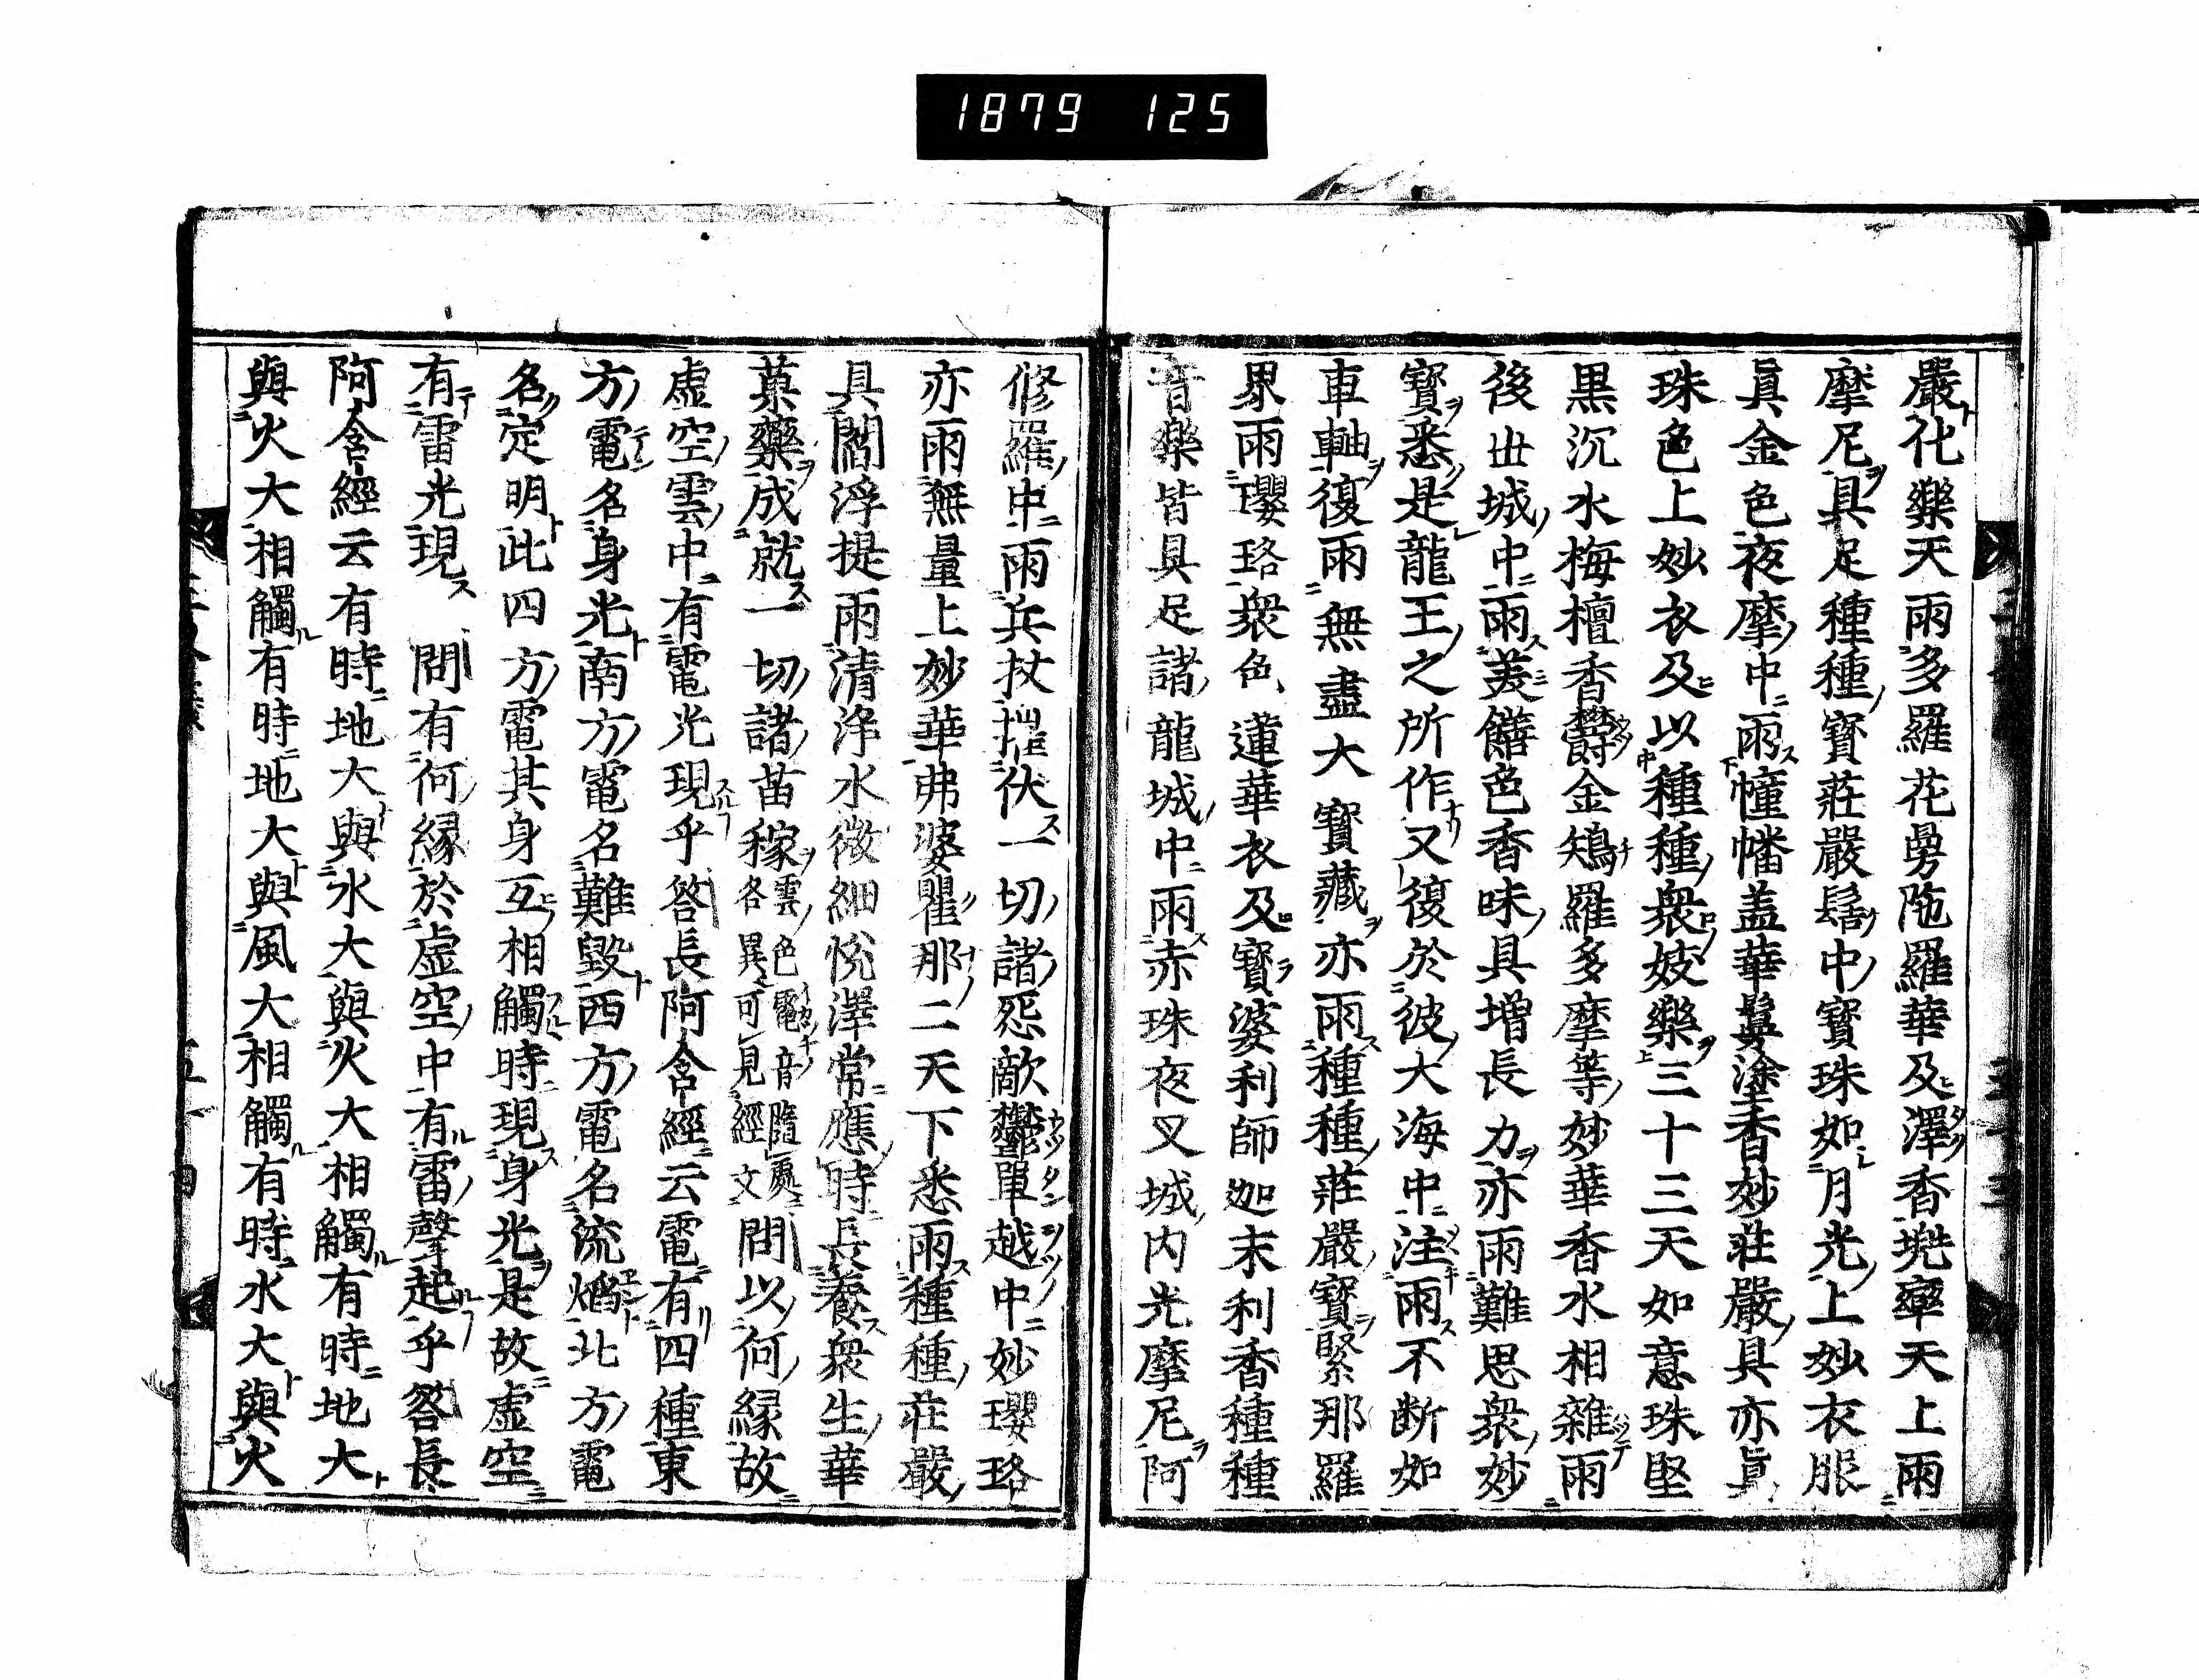 1879 125
嚴化樂天雨多羅花曼陁羅華及澤香兠率天上雨
摩尼具足種種寶莊嚴髻中寶珠如月光上妙衣服
眞金色夜摩中雨幢幡盖華鬘塗香妙莊嚴具亦眞
珠色上妙衣及以種種衆妓樂三十三天如意珠堅
黒沉水梅檀香欝金鴙羅多摩等妙華香水相雜雨
後世城中雨美饍色香味具增長力亦雨難思衆妙
寶悉是龍王之所作又復於彼大海中注雨不断如
車軸復雨無盡大寶藏亦雨種種莊嚴寶緊那羅
界雨瓔珞衆色蓮華衣及寶婆利師迦末利香種種
音樂皆具足諸龍城中雨赤珠夜叉城内光摩尼阿
修羅中雨兵杖摧伏一切諸怨敵欝單越中妙瓔珞
亦雨無量上妙華弗婆瞿那二天下悉雨種種莊嚴
具閻浮提雨清浄水微細悅澤常應時長養衆生華
菓藥成就一切諸苗稼雲色電音隨處各異可見經文問以何縁故
虚空雲中有電光現乎答長阿含經云電有四種東
方電名身光南方電名難毀西方電名流焔北方電
名定明此四方電其身互相觸時現身光是故虚空
有雷光現 問有何縁於虚空中有雷聲起乎答長
阿含經云有時地大與水大與火大相觸有時地大
與火大相觸有時地大與風大相觸有時水大與火